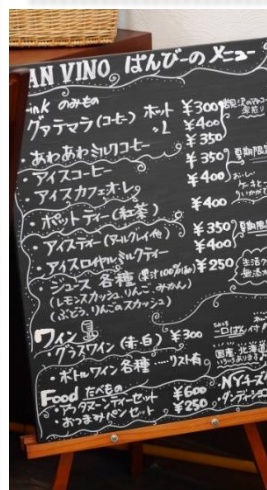 AN VINO ぱんびーの メニュー
ink のみもの
グァテマラ(コーヒー) ホット ¥300
〃 L ¥400
・あわあわミルクコーヒー ¥350
・アイスコーヒー ¥350
・アイスカフェオレ ¥400
・ホットティー(紅茶) ¥400
・アイスティー(アールグレイ) ¥350
・アイスロイヤルミルクティー ¥400
・ジュース 各種 (果汁100%) ¥250
(レモンスカッシュ、りんご、みかん)
(ぶどう、りんごのスカッシュ)
ワイン
・グラスワイン(赤・白) ¥300
一口ぱん付
・ボトルワイン 各種 ……リスト有
国産・北海道
Food たべもの
・アフタヌーンティーセット ¥600
・おつまみパンセット ¥250
NYチーズ